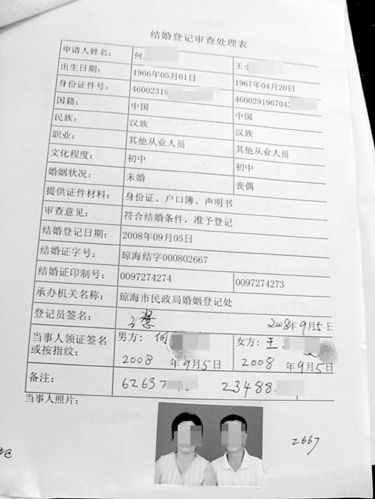 结婚登记审查处理表
申请人姓名： 何 王
出生日期： 1966年05月01日 1967年04月20日
身份证件号： 46002319 4600291967042
国籍： 中国 中国
民族： 汉族 汉族
职业： 其他从业人员 其他从业人员
文化程度： 初中 初中
婚姻状况： 未婚 丧偶
提供证件材料： 身份证、户口簿、声明书
审查意见： 符合结婚条件，准予登记
结婚登记日期： 2008年09月05日
结婚证字号： 琼海结字000802667
结婚证印制号： 0097274274 0097274273
承办机关名称： 琼海市民政局婚姻登记处
登记员签名： 2008年9月5日
当事人领证签名 男方：何 女方：王
或按指纹： 2008 年9月5日 2008 年9月5日
备注： 62637 23488
当事人照片：
2667